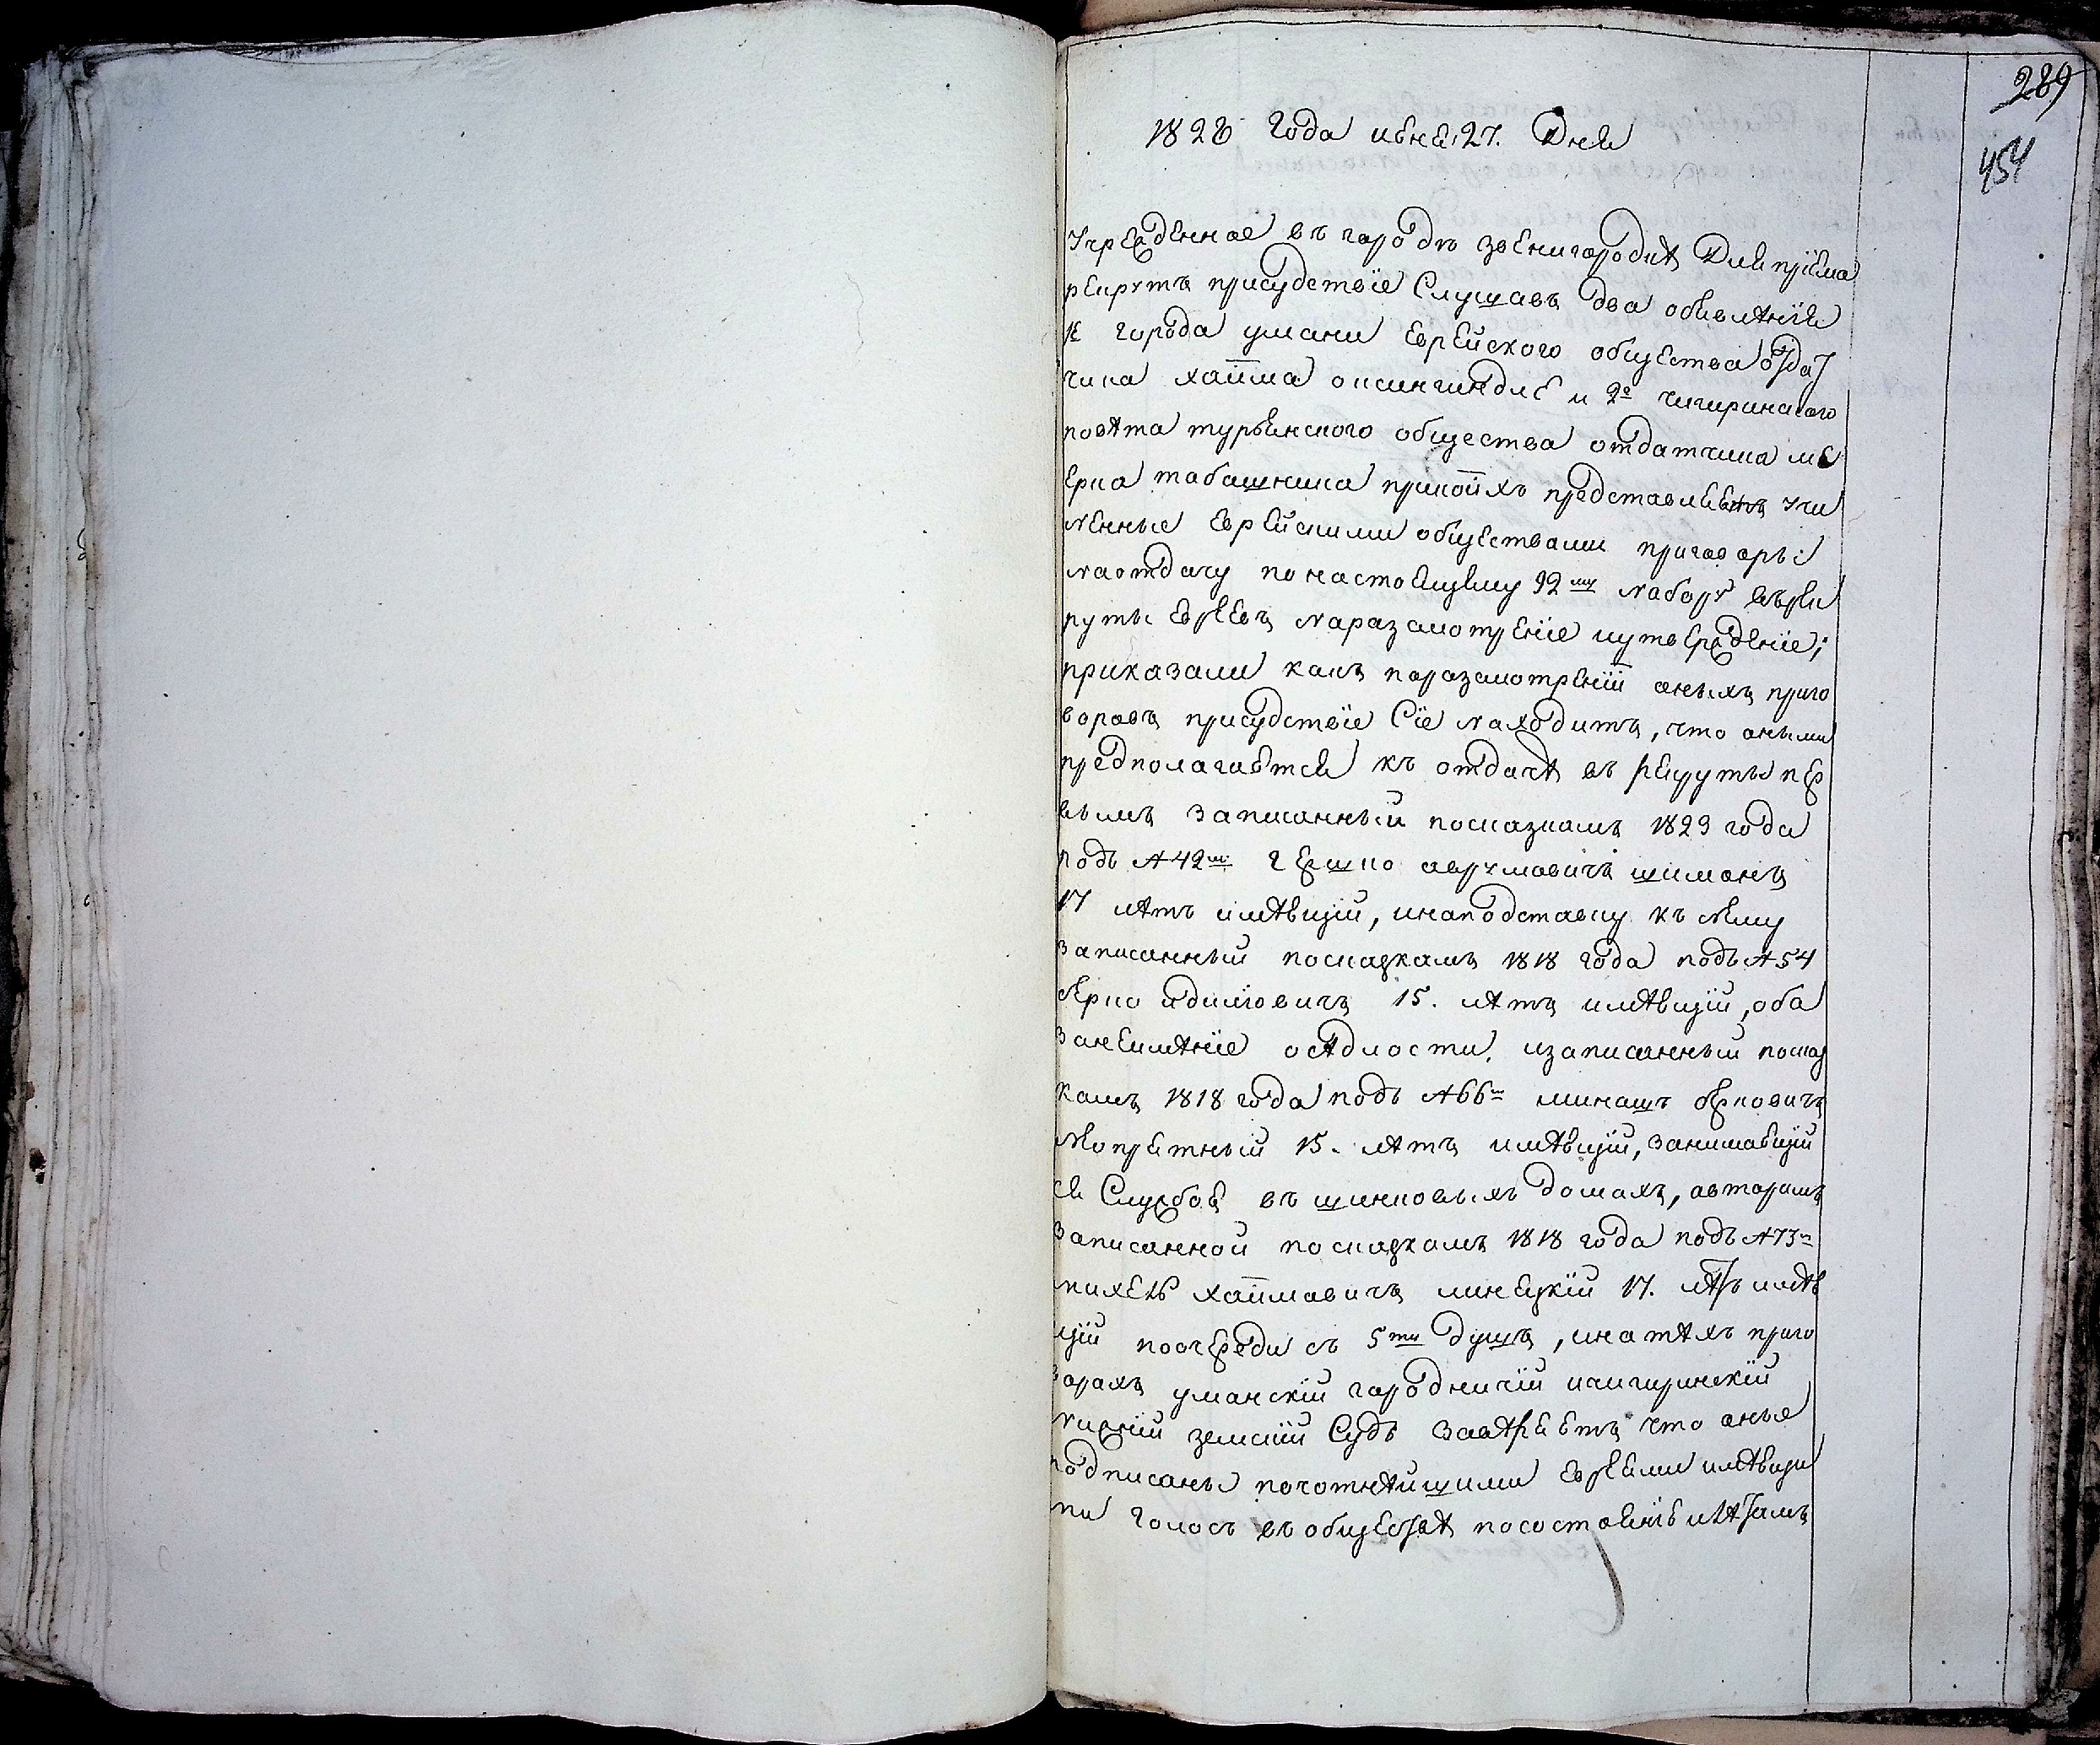 289
454
1828 года июня 27. Дня
Учрежденное въ городѣ звенигородкѣ Для пріема
рекрутъ присудствіе Слушавъ два объявлѣнія
1е города умани Еврейского общества отдат
чика хаима и 2е чигиринского
повѣта турьянского общества отдатчика ме
ерка табашника при коихъ представляютъ учи
ненные Еврейскими обществами приговоры
на отдачу по настоящему 92му набору въ рек
руты Евреевъ на разсмотреніе и утвержденіе;
приказали какъ по разсмотреніи оныхъ приго
воровъ присудствіе Сіе находитъ, что оными
предполагается къ отдачѣ въ рекруты пер
вымъ записанный по сказкамъ 1823 года
подъ №42м гершко аврумовичъ шимонъ
17 лѣтъ имѣющій, и на подставку къ нему
записанный по сказкамъ 1818 года подъ №54
берко 15. лѣтъ имѣющій, оба
за неимѣніе осѣдлости, и записанный по сказ
камъ 1818 года подъ №66м минашъ берковичъ
Мокретный 15. лѣтъ имѣющій, занимающій
ся Службою въ шинковыхъ домахъ, а вторымъ
записанной по сказкамъ 1818 года подъ №73м
хаимовичъ линецкій 17. лѣтъ имѣю
щій по очереди съ 5ти душъ, и на тѣхъ приго
ворахъ уманскій городничій и чигиринскій
нижній земскій Судъ завѣряетъ что оные
подписаны почотнѣйшими Евреями имѣющи
ми голосъ въ обществѣ по состоянію и лѣтамъ